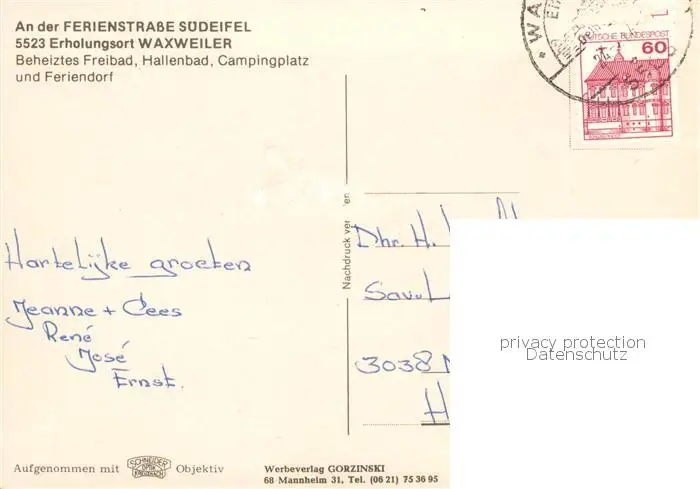 An der FERIENSTRAßE SÜDEIFEL
5523 Erholungsort WAXWEILER
Beheiztes Freibad, Hallenbad, Campingplatz
und Feriendorf
DEUTSCHE BUNDESPOST
60
Nachdruck ver
en
Dhr. H.
Sav. L
3038
H
privacy protection
Datenschutz
Hartelijke groeten
Jeanne + Cees
René
José
Ernst.
Aufgenommen mit SCHNEIDER OPTIK KREUZNACH Objektiv
Werbeverlag GORZINSKI
68 Mannheim 31, Tel. (06 21) 75 36 95